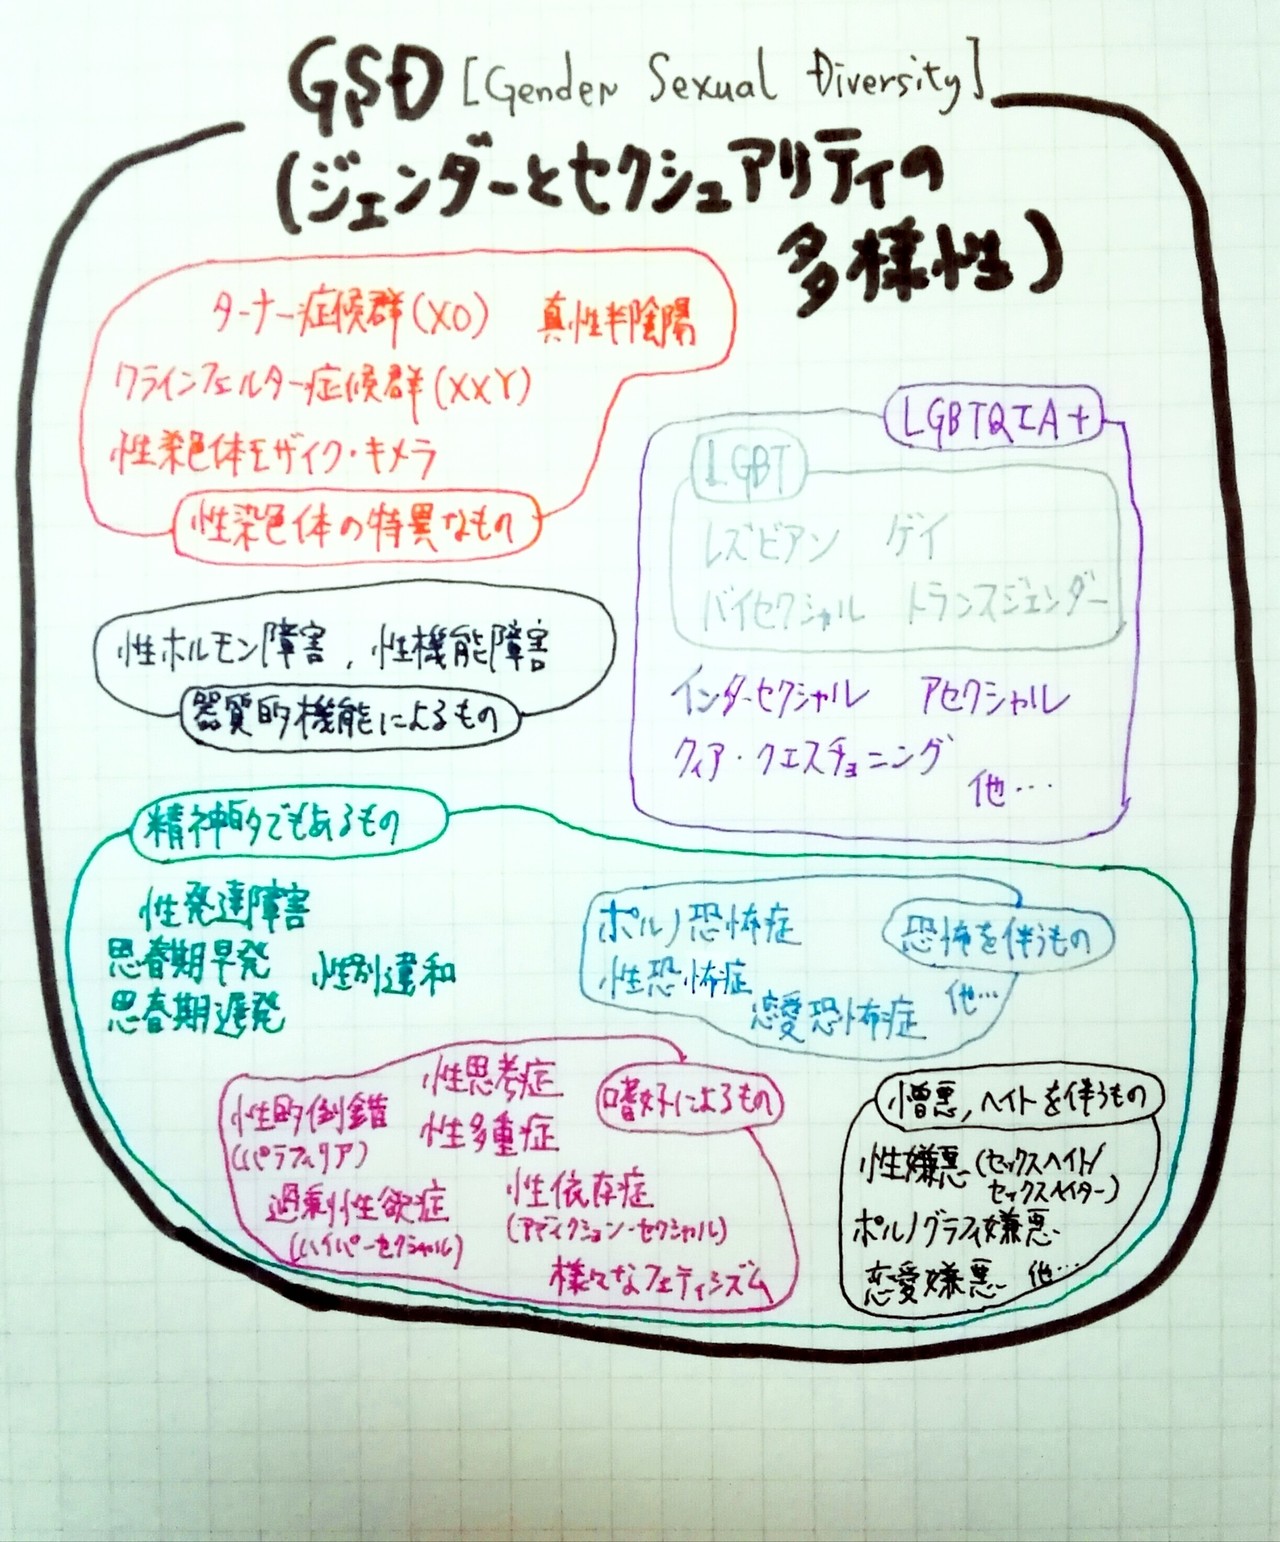 GSD [Gender Sexual Diversity]
(ジェンダーとセクシュアリティの
多様性)
ターナー症候群(XO) 真性半陰陽
クラインフェルター症候群(XXY)
性染色体モザイク・キメラ
性染色体の特異なもの
LGBTQIA+
LGBT
レズビアン ゲイ
バイセクシャル トランスジェンダー
インターセクシャル アセクシャル
クィア・クエスチョニング
他…
性ホルモン障害, 性機能障害
器質的機能によるもの
精神的でもあるもの
性発達障害
思春期早発 性別違和
思春期遅発
恐怖を伴うもの
ポルノ恐怖症
性恐怖症
恋愛恐怖症 他…
嗜好によるもの
性思考症
性的倒錯
(パラフィリア)
性多重症
過剰性欲症
(ハイパーセクシャル)
性依存症
(アディクション-セクシャル)
様々なフェティシズム
憎悪,ヘイトを伴うもの
性嫌悪(セックスヘイト/
セックスヘイター)
ポルノグラフィ嫌悪
恋愛嫌悪 他…